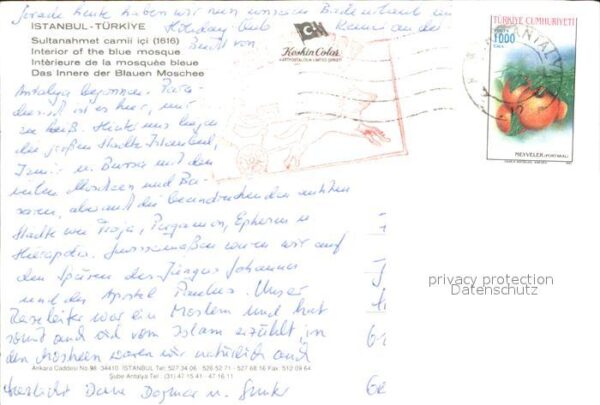 Gerade heute haben wir nun unseren Badeurlaub im
Holiday Club Kemer an der
Bucht von
Antalya begonnen. Para-
diesisch ist es hier, nur
zu heiß. Hinter uns liegen
die großen Städte Istanbul,
Izmir u. Bursa mit den
vielen Moscheen und Ba-
saren, aber auch die beeindruckenden antiken
Städte wie Troja, Pergamon, Ephesus u
Hierapolis. Gewissermaßen waren wir auf
den Spuren des Jüngers Johannes
und des Apostel Paulus. Unser
Reiseleiter war ein Moslem und hat
sonst und viel vom Islam erzählt, in
den Moscheen waren wir natürlich auch
Herzlichst Deine Dagmar u.
İSTANBUL - TÜRKİYE
Sultanahmet camii içi (1616)
Interior of the blue mosque
Intérieure de la mosquée bleue
Das Innere der Blauen Moschee
Keskin Color
KARTPOSTALCILIK LIMITED ŞIRKETI
TÜRKİYE CUMHURİYETİ
POSTA
1000
LIRA
MEYVELER (PORTAKAL)
ANTALYA
privacy protection
Datenschutz
Ankara Caddesi No 98 34410 İSTANBUL Tel: 527 34 06 - 526 52 71 - 527 68 16 Fax: 512 09 64
Şube Antalya Tel: (31) 47 15 41 - 47 16 11